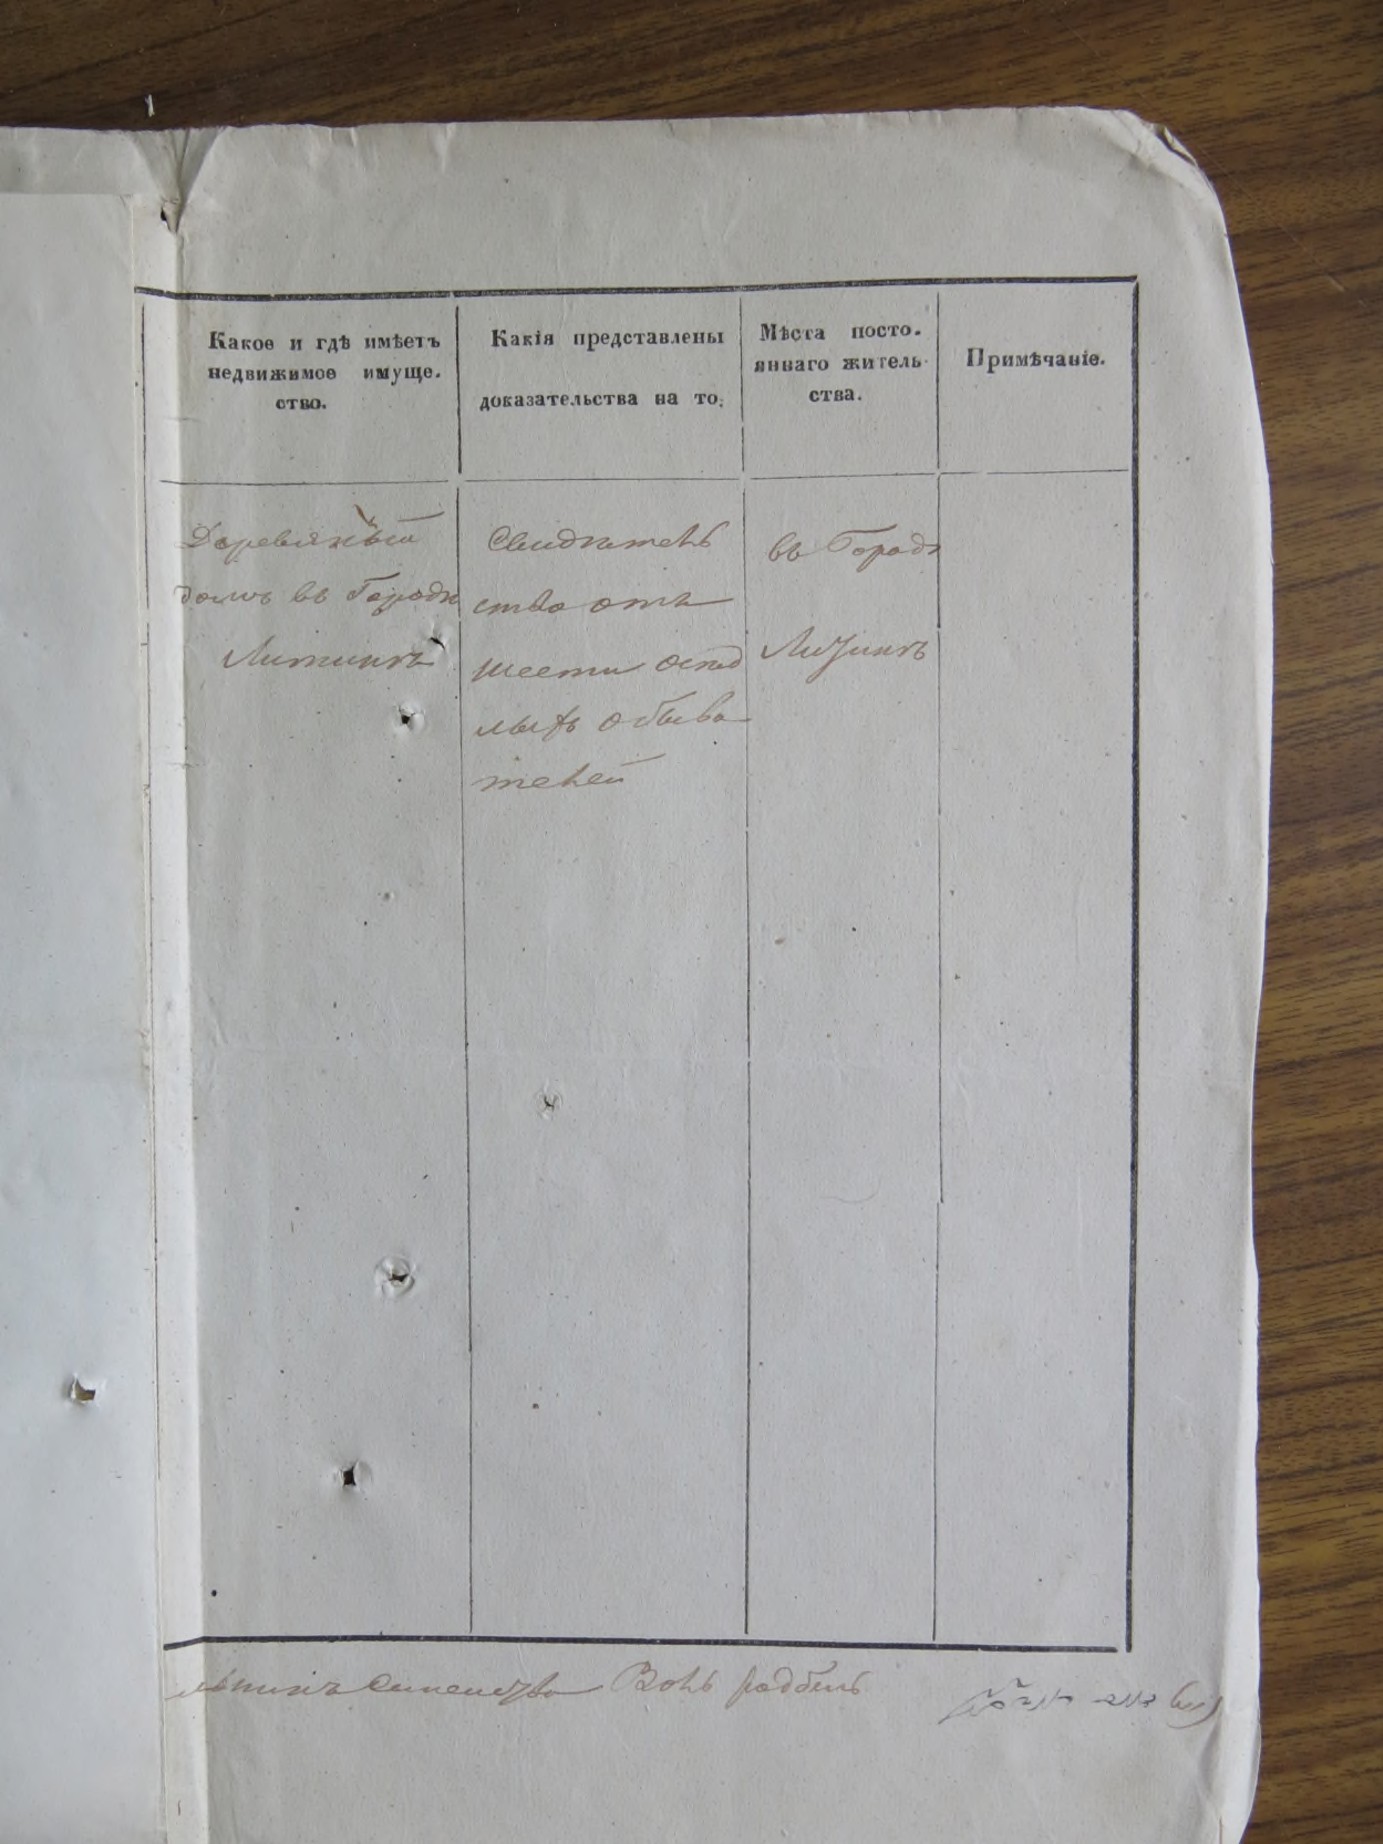 Какое и гдѣ имѣетъ
недвижимое имуще-
ство.
Какія представлены
доказательства на то.
Мѣста посто-
яннаго житель-
ства.
Примѣчаніе.
Деревяный
домъ въ Городѣ
Литинѣ
Свидѣтель
ство отъ
шести осѣд
лыхъ обыва
телей
въ Городѣ
Литинѣ
раббинъ